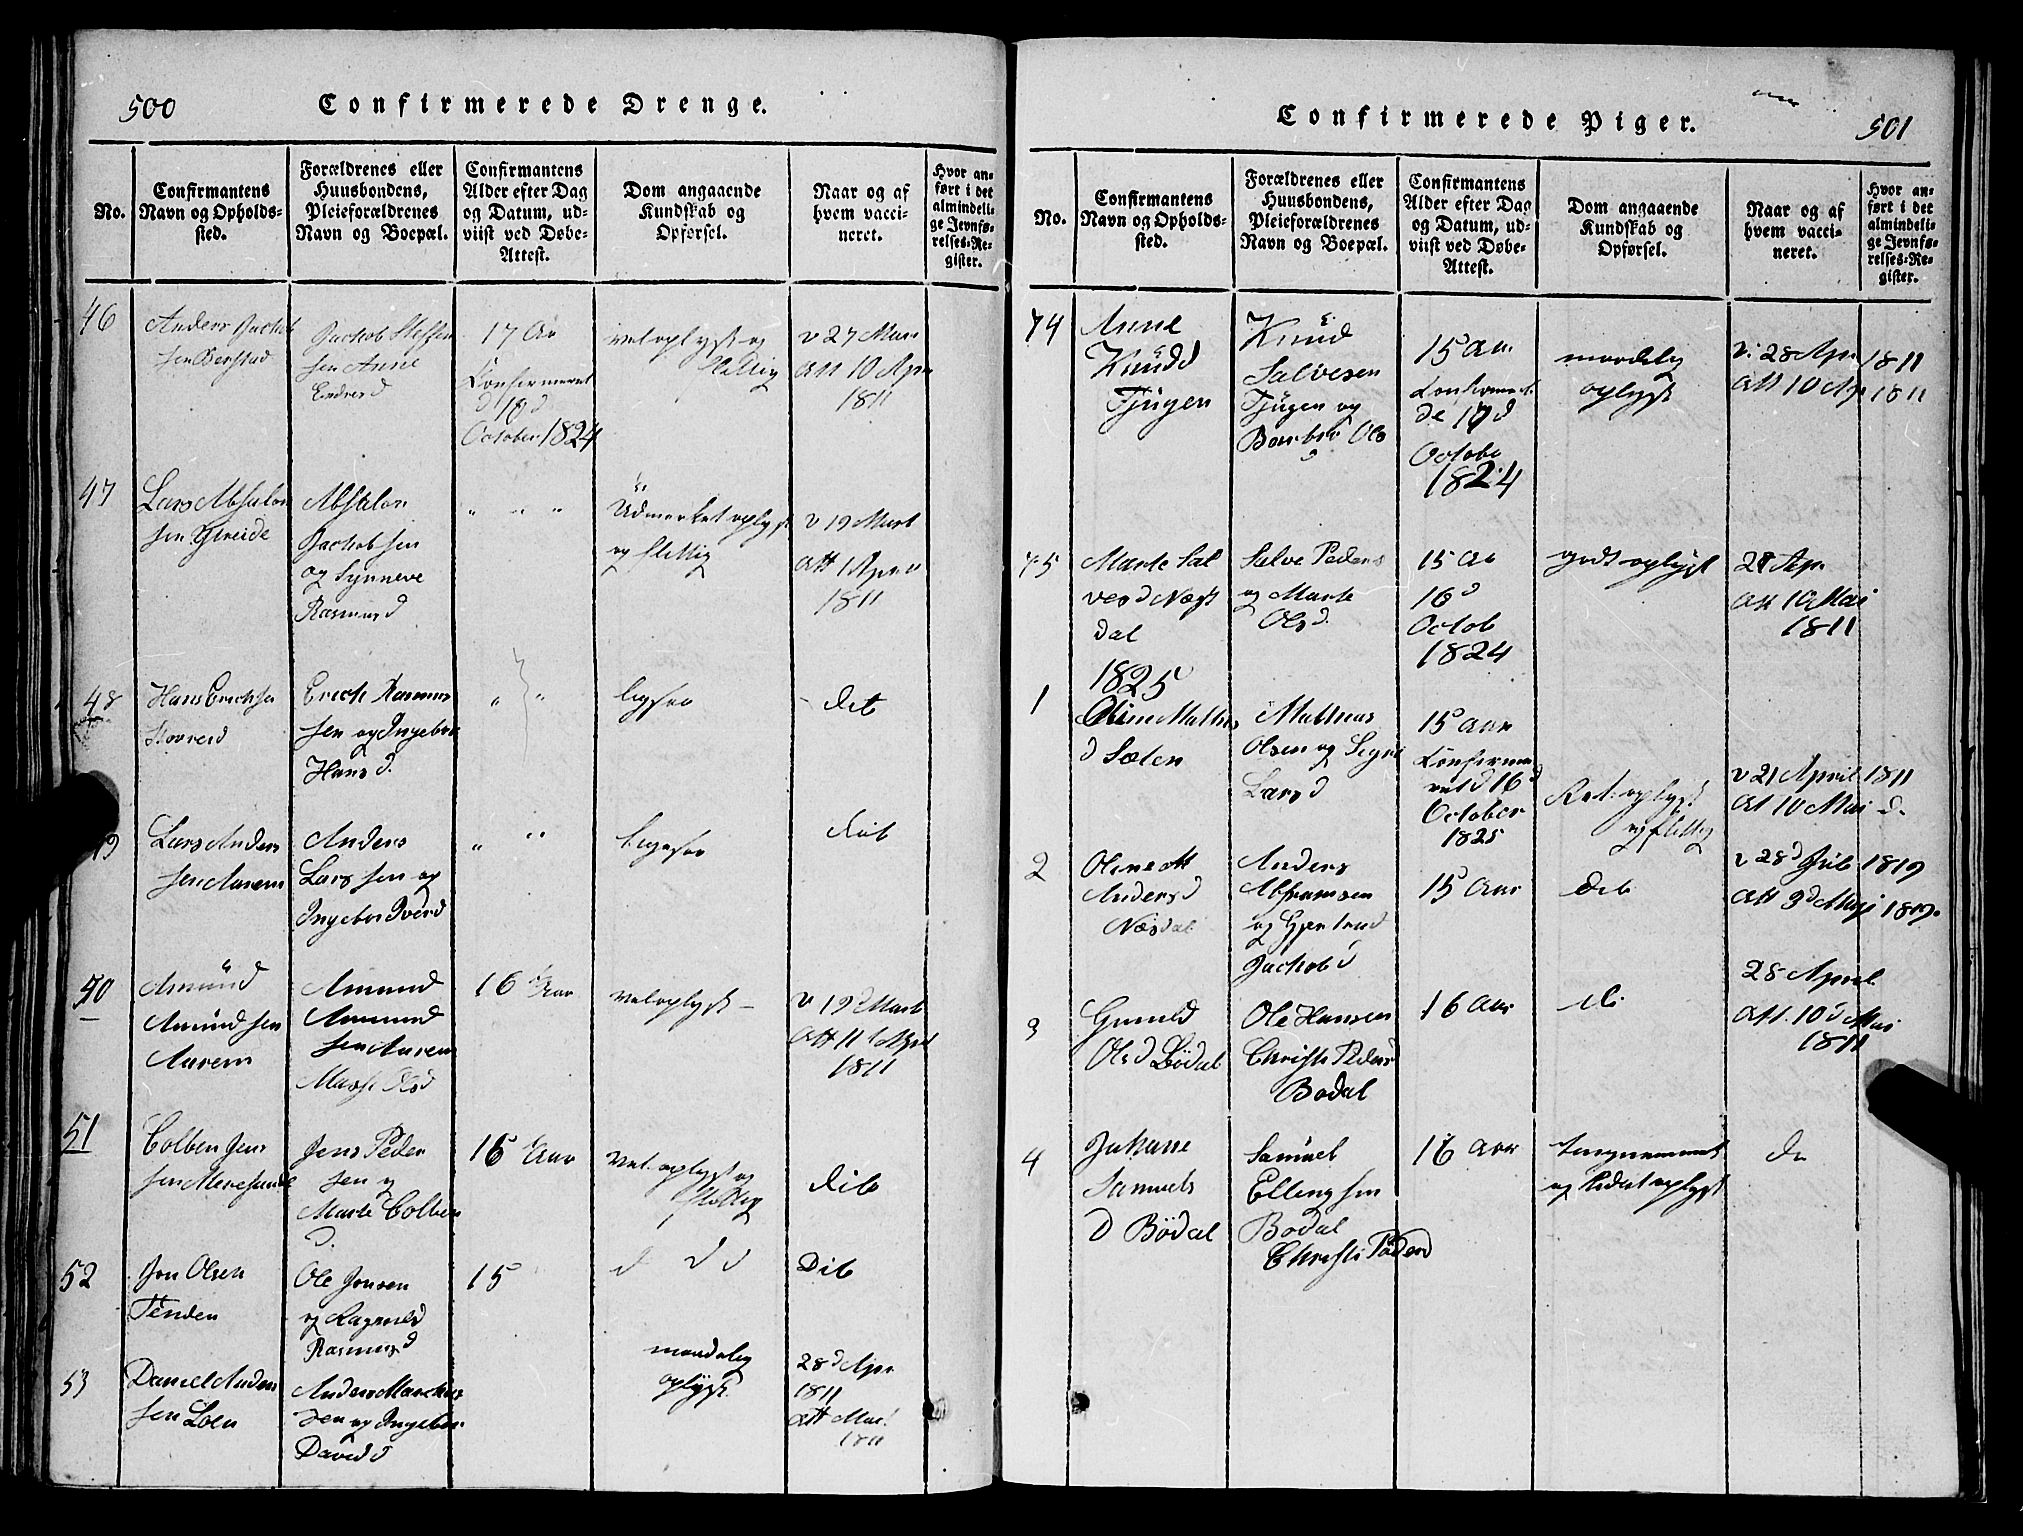 500 Confirmerede Drenge.
No.
Confirmantens
Navn og Opholds-
sted.
Forældrenes eller
Huusbondens,
Pleieforældrenes
Navn og Boepæl.
Confirmantens
Alder efter Dag
og Datum, ud-
viist ved Døbe-
Attest.
Dom angaaende
Kundskab og
Opførsel.
Naar og af
hvem vacci-
neret.
Hvor an-
ført i det
almindeli-
ge Jevnfø-
relses-Re-
gister.
46
Anders Jacob
sen
Jacob Steffen
sen Anne
Enders d
17 Aar
Confirmeret
d 18 d
October 1824
vel oplyst og
flittig
v 27 Mars
Att 10 Apr
1811
47
Lars Absalon
sen Greide
Absalon
Jacobsen
og Synneve
Rasmus d
" " "
Üdmerket oplyst
og flittig
v 19 Mart
Att 1 April
1811
48
Hans Erichse
Erich Rasmus
sen og Ingebor
Hans d.
" "
ligesaa
- dit
Lars Anders
sen Aarem
Anders
Larssen og
Ingebor Iver d
" "
ligesaa
dit
50
Amünd
Amündsen
Aarem
Amund
Amund
sen Aarem
16 Aar
vel oplyst -
v 19 d Mart
Att 11 April
1811
51
Colben Jens
sen
Jens Peder
sen og
Marte Colben
d.
16 Aar
vel oplyst og
flittig
dit
52
Jon Olsen
Tenden
Ole Jonsen
og Ragnild
Rasmus d
15
d d d
Dit
53
Daniel Anders
sen Loen
Anders Marchus
sen og Ingebor
David d
maadelig
oplyst
28 d Apr
1811
Att Mai
1811
Confirmerede Piger. 501
No.
Confirmantens
Navn og Opholds-
sted.
Forældrenes eller
Huusbondens,
Pleieforældrenes
Navn og Boepæl.
Confirmantens
Alder efter Dag
og Datum, ud-
viist ved Døbe-
Attest.
Dom angaaende
Kundskab og
Opførsel.
Naar og af
hvem vacci-
neret.
Hvor an-
ført i det
almindeli-
ge Jevnfø-
relses-Re-
gister.
74
Anne
Knüd d
Tjugen
Knüd
Salvesen
Tjügen og
Ols
d
15 Aar
Confirmert
de 17 d
Octobe
1824
maadelig
oplyst
v. 28 Apr 1811
Att 10 Ap 1811
75
Marte Sal
ves d Næs
dal
Salve Peders
og Marte
Ols d.
15 Aa
16 d
Octob
1824
godt oplyst
28 Apr
Att 10 Mai
1811
1825
1
Oline Mathis
d Sæten
Mathias
Olsen og Sigri
Lars d
15 Aar
Confirme
ret d 16 d
October
1825
Ret oplyst
og flittig
v 21 April 1811
Att 10 Mai d.
2
Anders d
Næsdal
Anders
Abramsen
og Gjertrud
Jachob d
15 Aar
dit
v 28 d Jul 1819
Att 3 d
3
Gunild
Ols d Bödal
Ole Hansen
Christi Peders d
Bodal
16 Aar
di
28 April
Att. 10 d Mai
1811
4
Johane
Samuels
d Bödal
Samüel
Ellingsen
Bodal
Christi Peder d
16 Aar
og oplyst
do